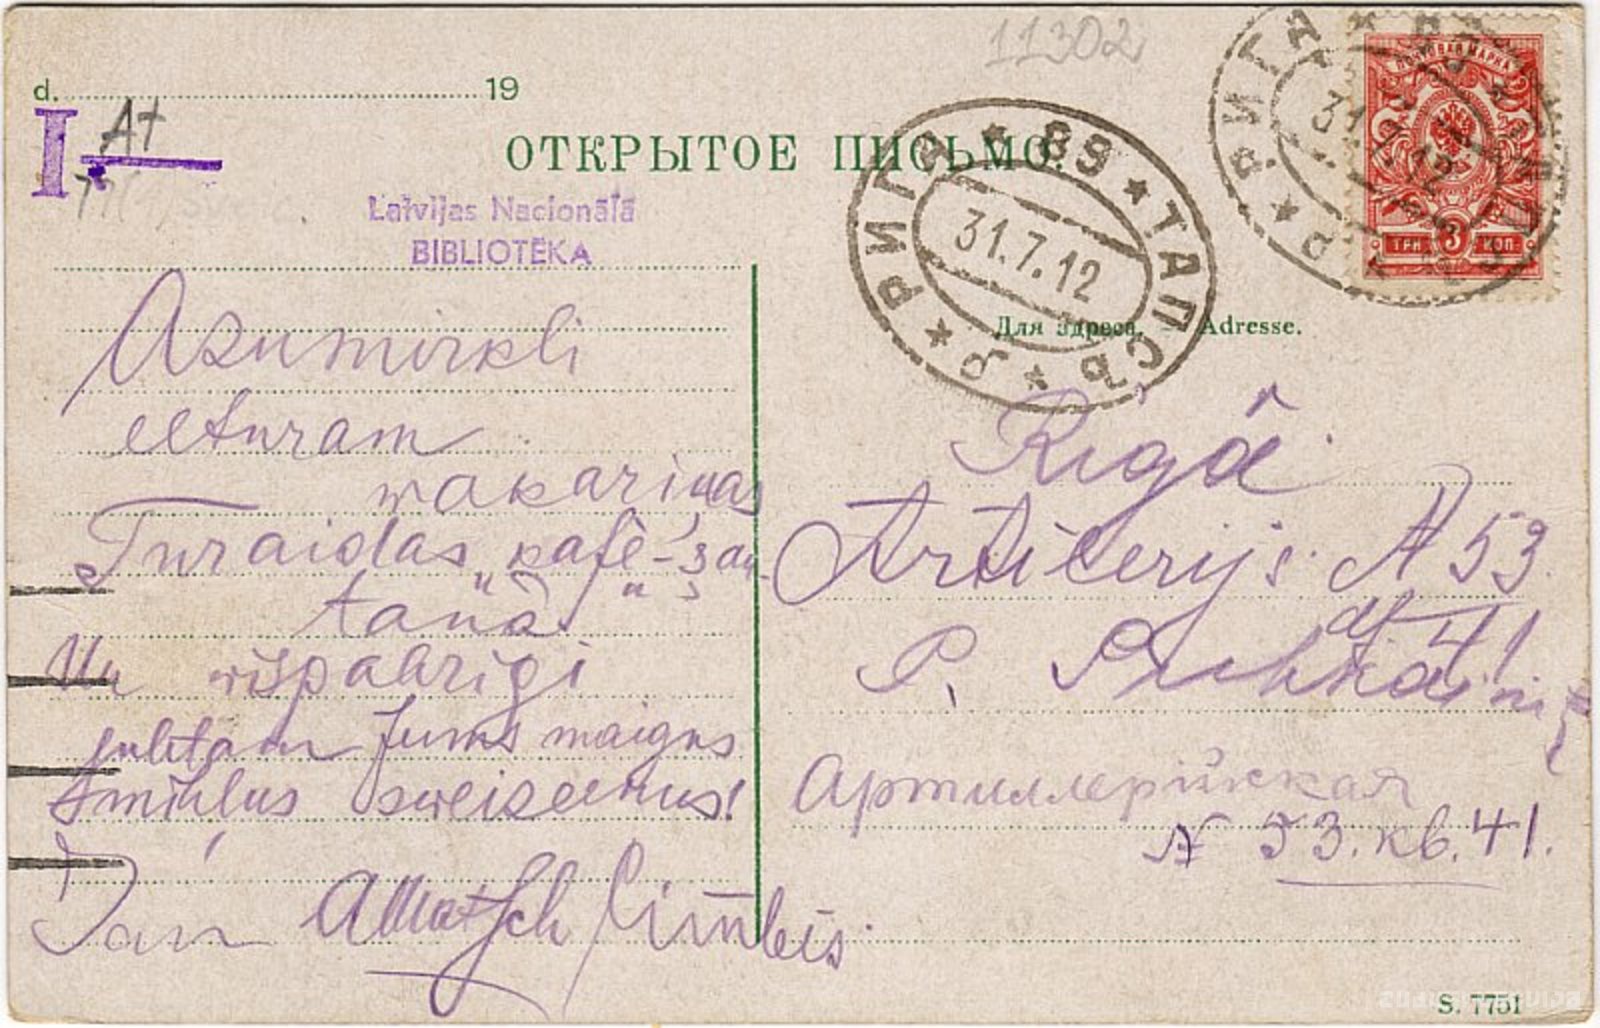 11302
d. 19
I At
ОТКРЫТОЕ ПИСЬМО.
Latvijas Nacionālā
BIBLIOTĒKA
РИГА 89 ТАПСЪ
31.7.12
РИГА
31.7.12
ПОЧТОВАЯ МАРКА
ТРИ 3 КОП.
Для адреса. — Adresse.
Azumirkli
eeturam
wakariņas
Turaidas „kafē-
tanā
Un wispahrigi
suhtam Jums maigus
smihlus sweizeenus!
Rigâ.
Artilerijs. № 53.
dz. 41
P.
Артиллерійская
№ 53. кв. 41.
S. 7751